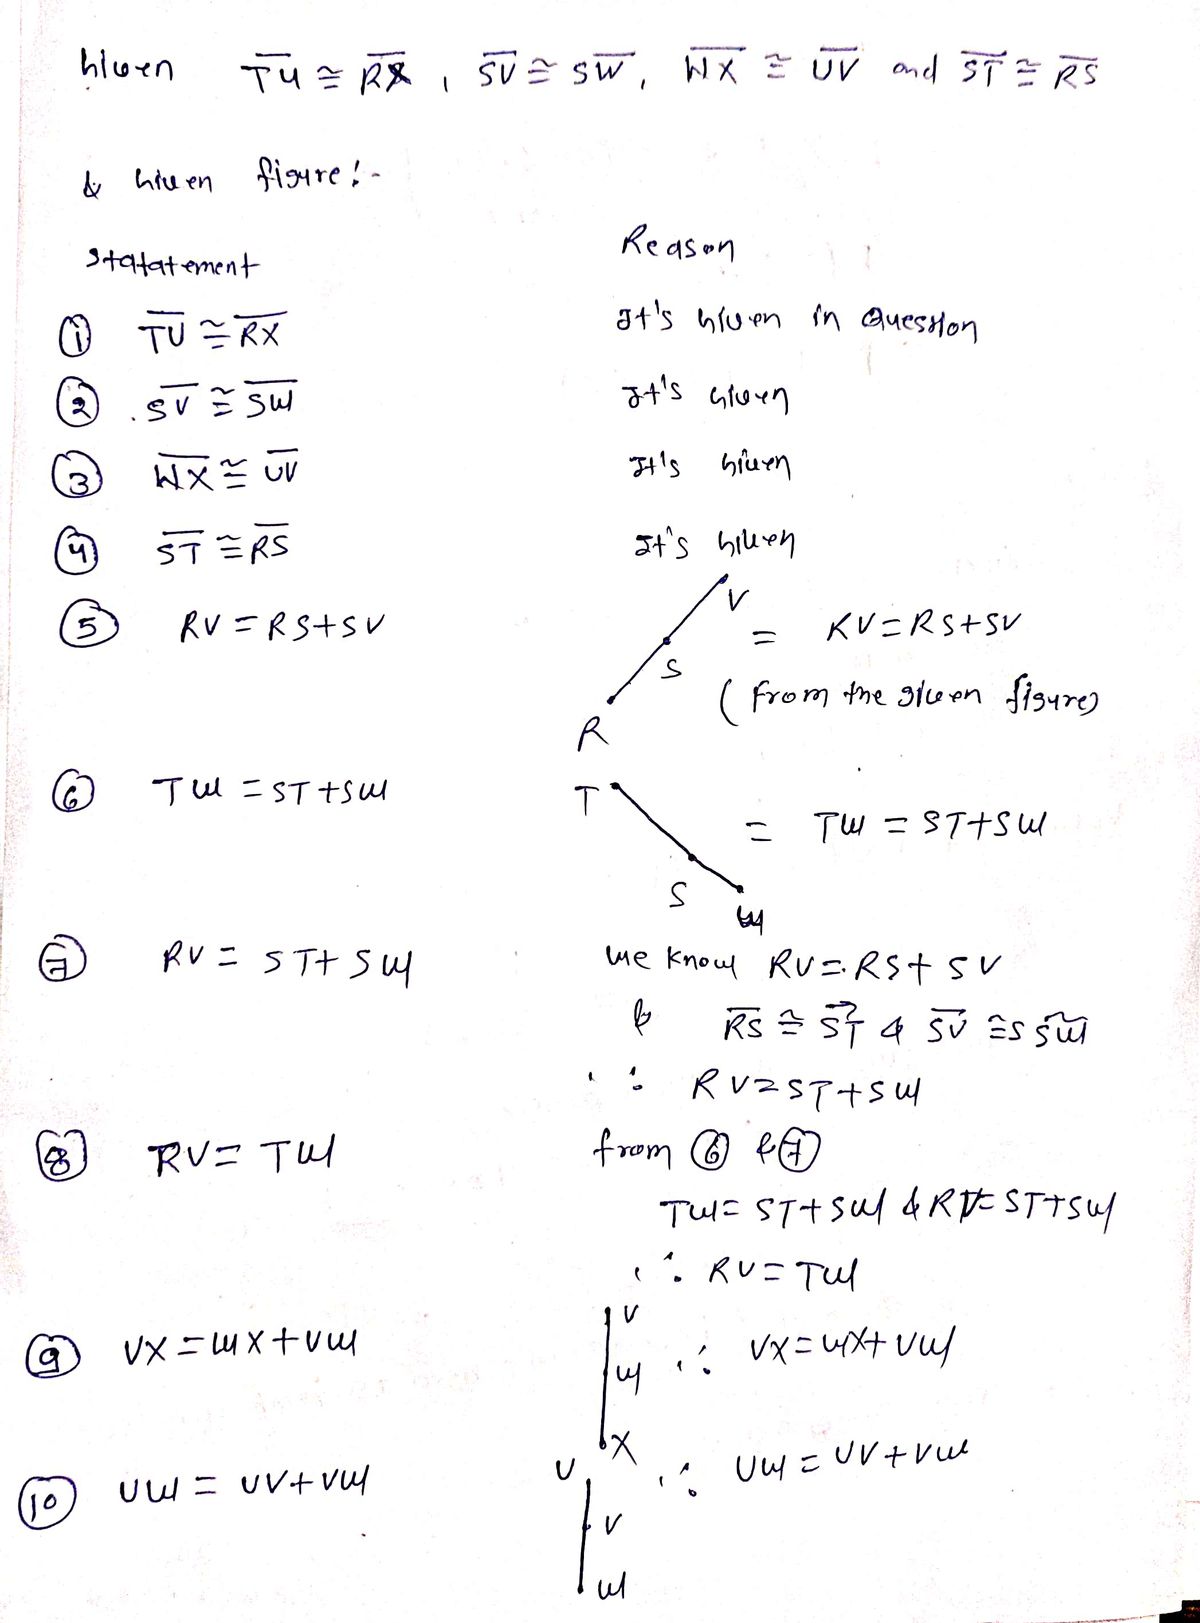 Given TU ≅ RX , SV ≅ SW, WX ≅ UV and ST ≅ RS
& Given figure:-
Statatement Reason
① TU ≅ RX It's Given in Question
② SV ≅ SW It's Given
③ WX ≅ UV It's Given
④ ST ≅ RS It's Given
⑤ RV = RS+SV = RV=RS+SV
V
S
R
(from the given figure)
⑥ TW = ST+SW = TW = ST+SW
T
S
W
⑦ RV = ST+SW we know RV=RS+SV
& RS ≅ ST & SV ≅ SW
∴ RV=ST+SW
⑧ RV= TW from ⑥ & ⑦
TW= ST+SW & RV= ST+SW
∴ RV=TW
⑨ VX=WX+VW ∴ VX=WX+VW
V
W
X
⑩ UW = UV+VW ∴ UW=UV+VW
U
V
W